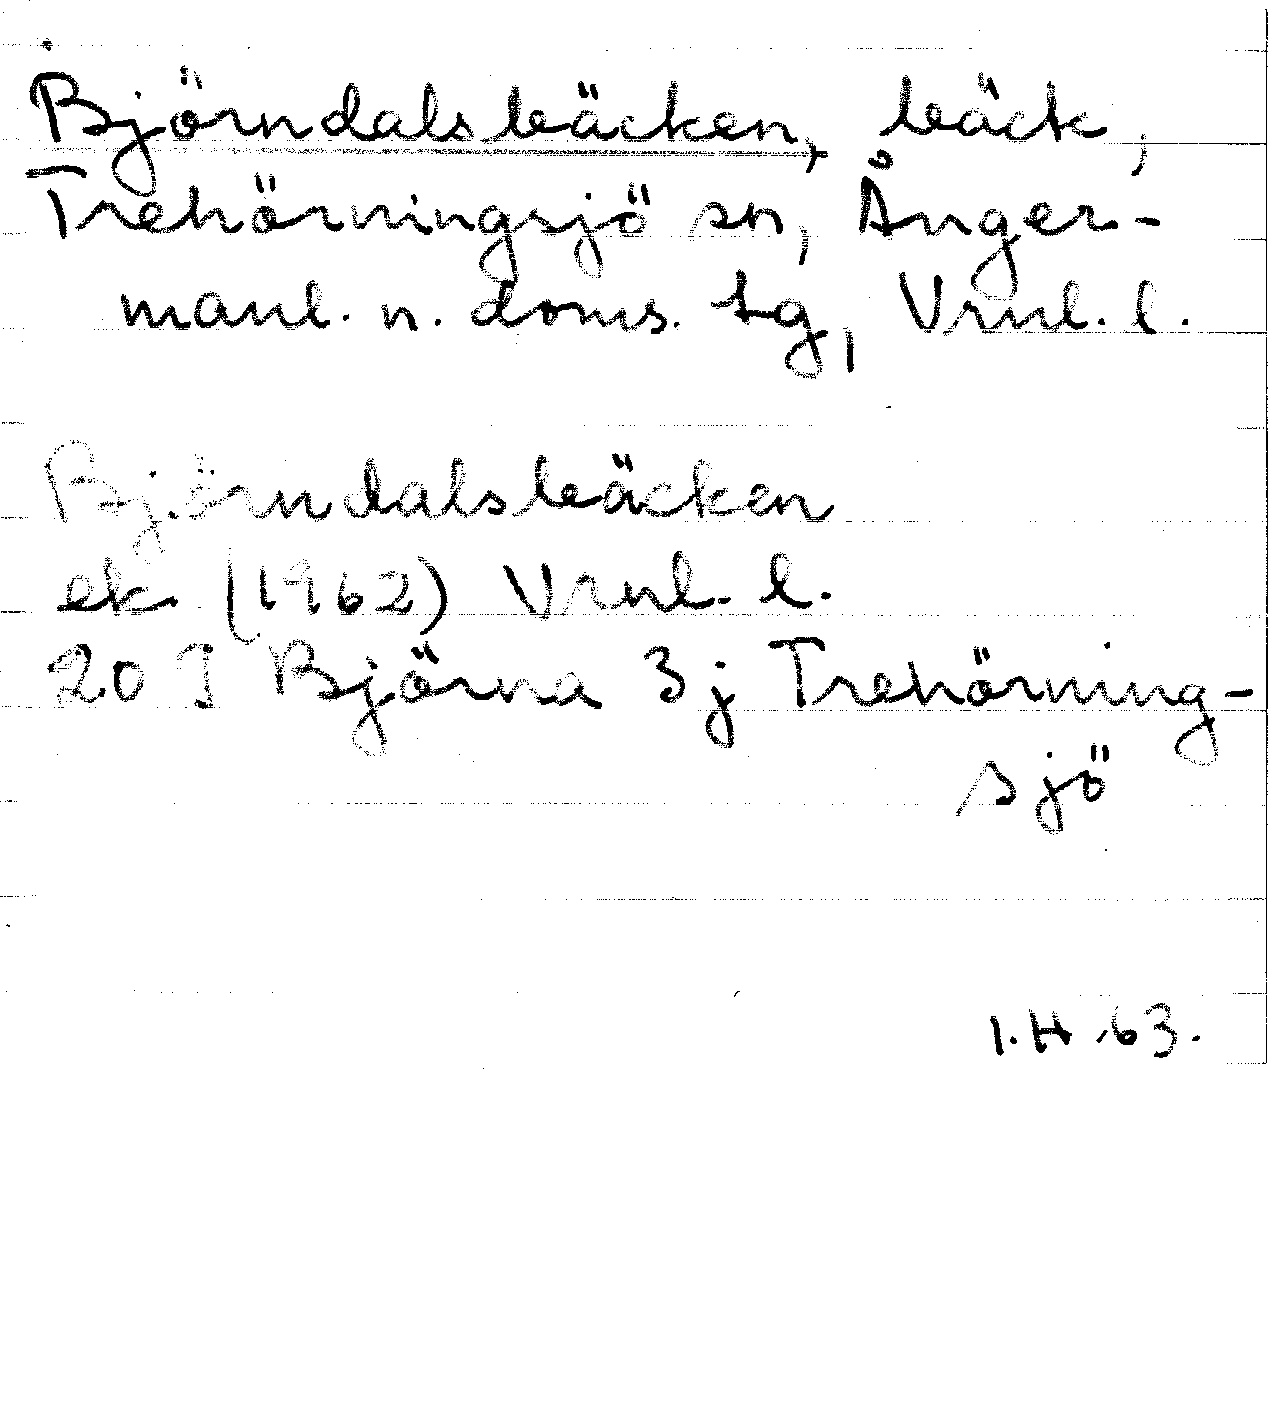 Björndalsbäcken, bäck,
Trehörningsjö sn, Ånger-
manl. n. doms. tg, Vrnl. l.
Björndalsbäcken
ek. (1962) Vrnl. l.
20 J Björna 3j Trehörning-
sjö
I.H. 63.